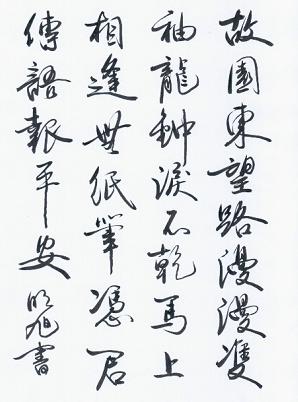 故園東望路漫漫雙
袖龍鍾淚不乾馬上
相逢無紙筆憑君
傳語報平安 明旭書